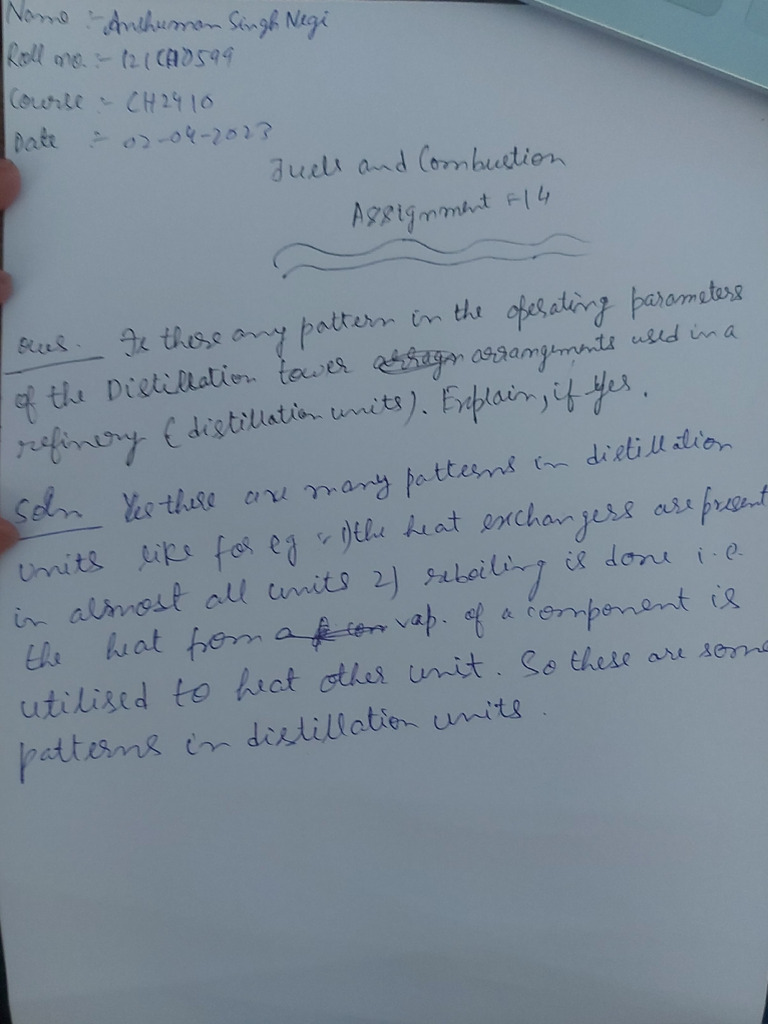 Name :- Anshuman Singh Negi
Roll no. :- 121CH0599
Course :- CH2410
Date :- 02-04-2023
Fuels and Combustion
Assignment -14
Ques. Is there any pattern in the operating parameters
of the Distillation tower arrangements used in a
refinery (distillation units). Explain, if yes.
Soln Yes there are many patterns in distillation
units like for eg :- 1) the heat exchangers are present
in almost all units 2) reboiling is done i.e.
the heat from a vap. of a component is
utilised to heat other unit. So these are some
patterns in distillation units.